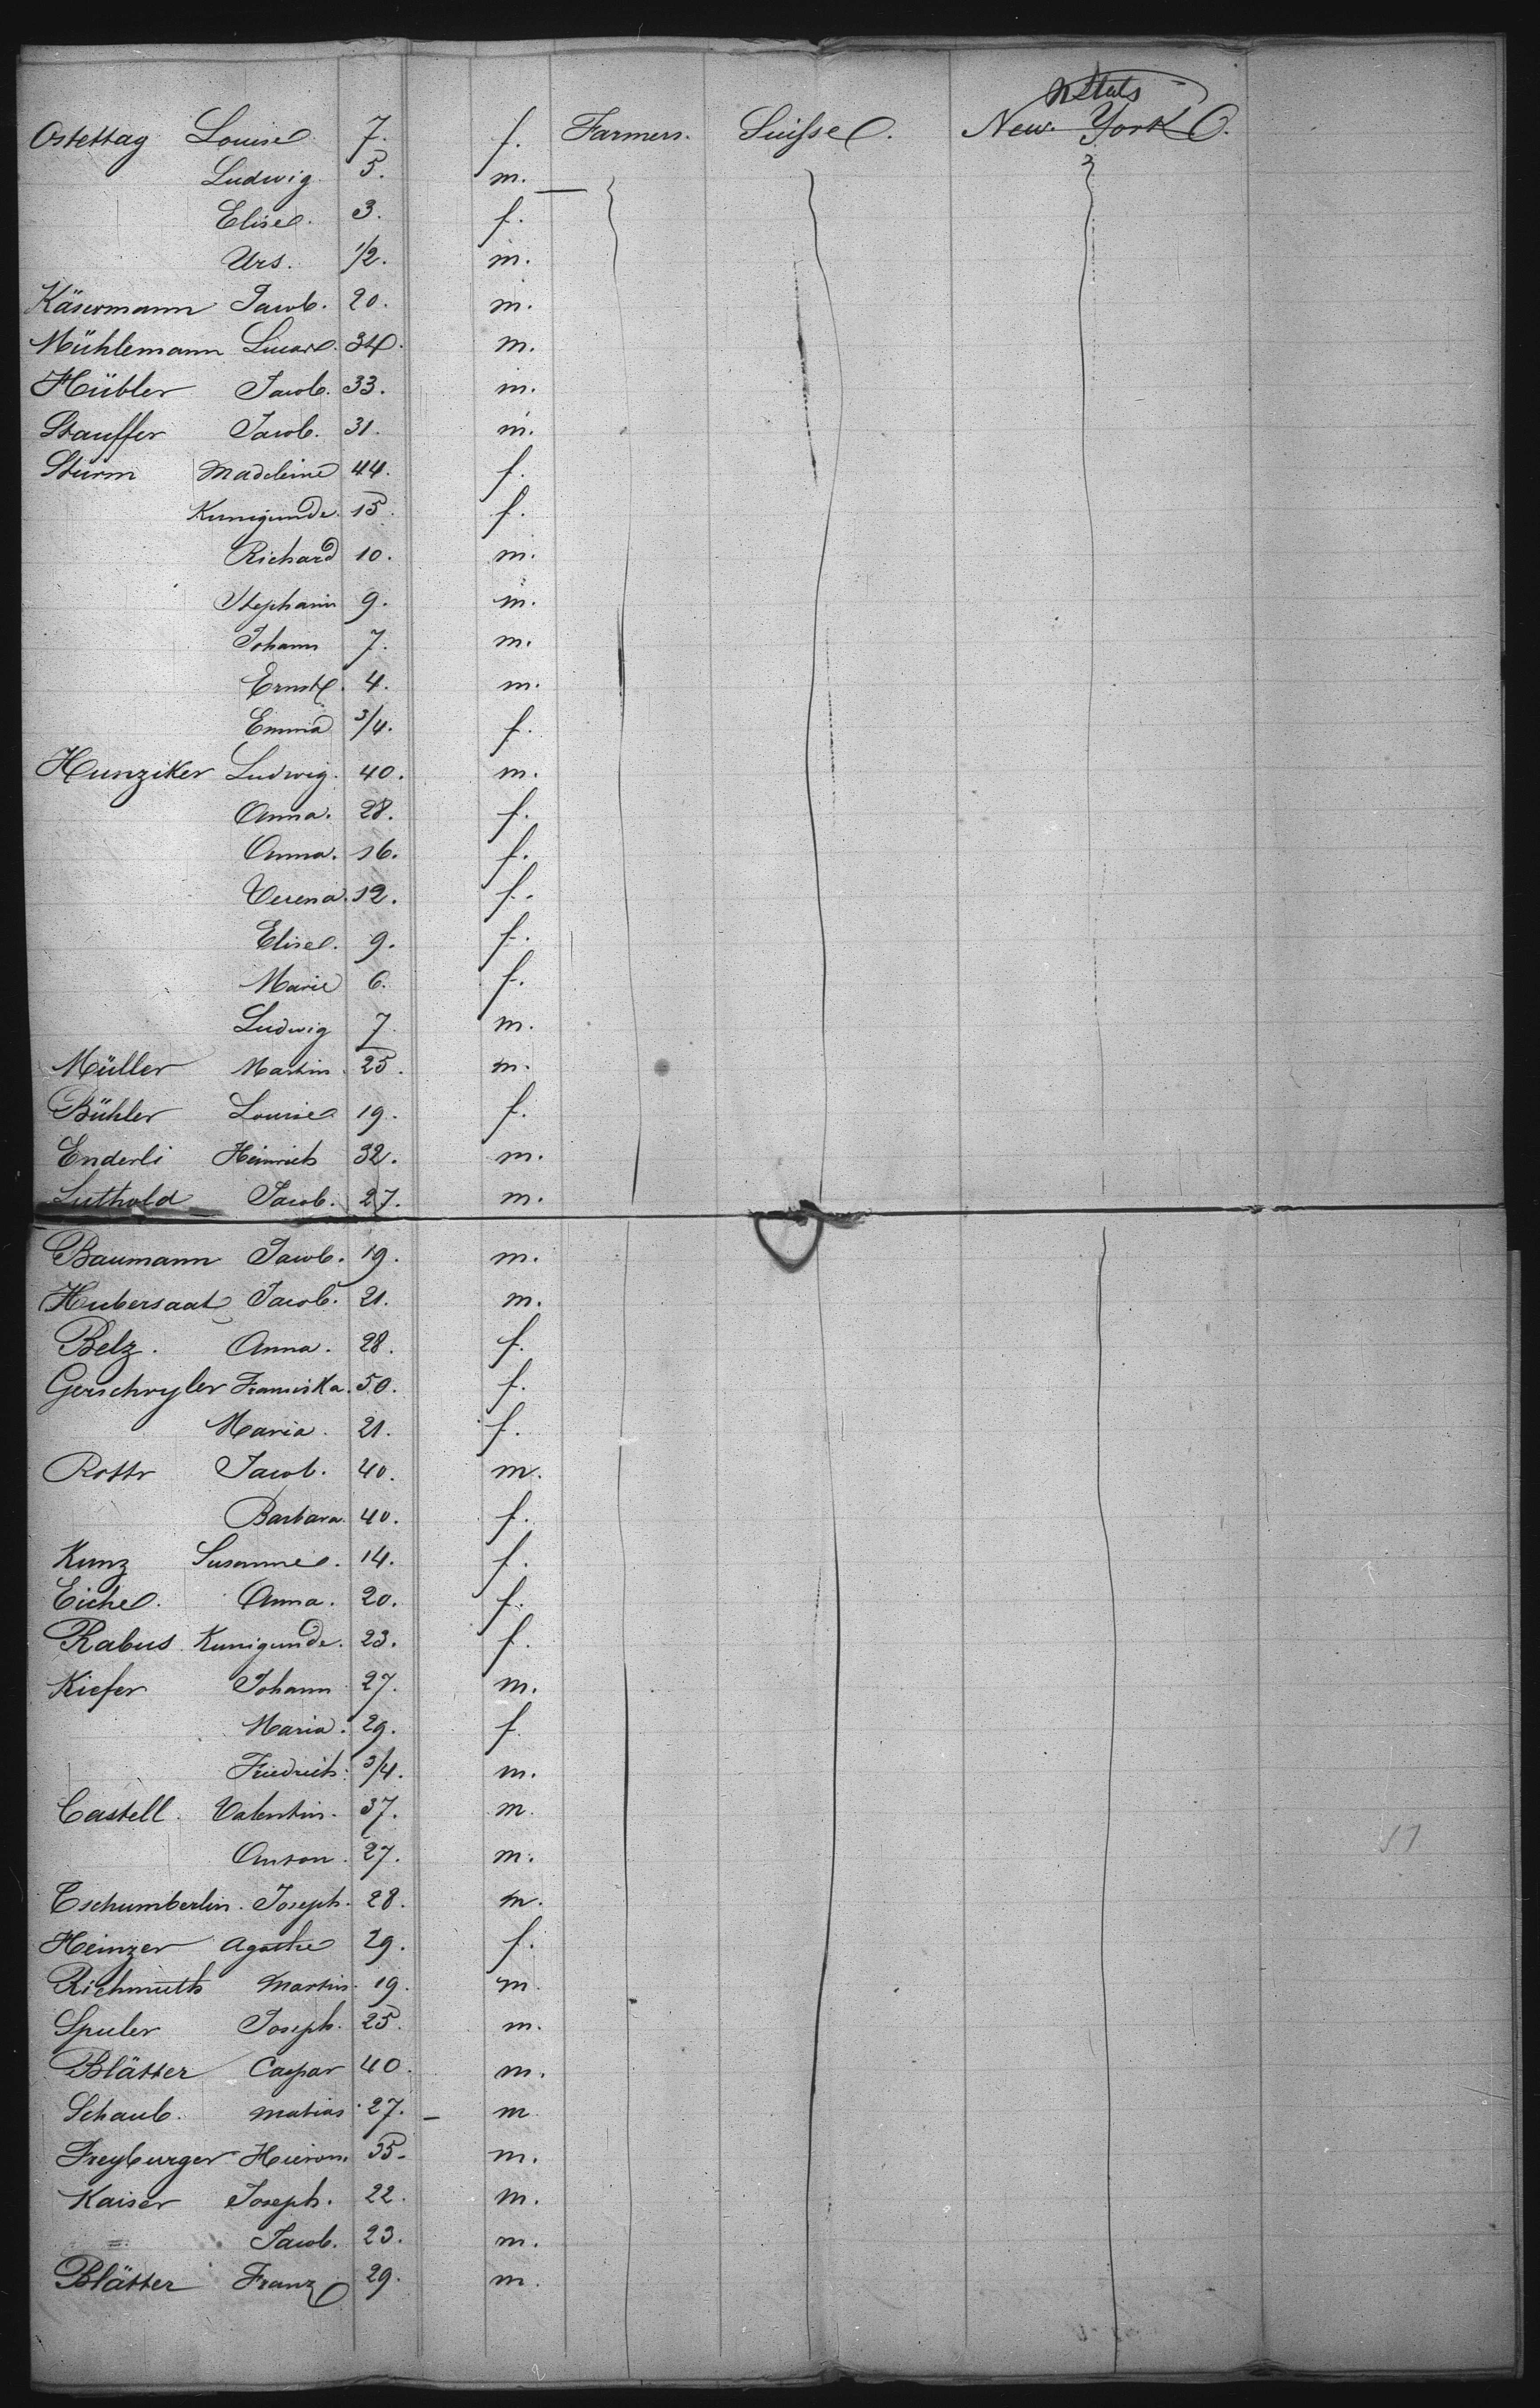 U Stats
Ostettag Louise 7. f. Farmers. Suisse. New York
Ludwig. 5. m.
Elise. 3. f.
Urs. 1/2. m.
Käsermann Jacob. 20. m.
Mühlemann 34. m.
Hübler Jacob. 33. m.
Stauffer Jacob. 31. m.
Sturm Madeleine 44. f.
Kunigunde. 15. f.
Richard 10. m.
Stephann 9. m.
Johann 7. m.
Ernst. 4. m.
Emma 3/4. f.
Hunziker Ludwig. 40. m.
Anna. 28. f.
Anna. 16. f.
Verena. 12. f.
Elise. 9. f.
Marie 6. f.
Ludwig 7. m.
Müller Martin. 25. m.
Bühler Louise 19. f.
Enderli Heinrich 32. m.
Luthold Jacob. 27. m.
Baumann Jacob. 19. m.
Hubersaat Jacob. 21. m.
Belz. Anna. 28. f.
Gerschwyler Franciska. 50. f.
Maria. 21. f.
Rottr Jacob. 40. m.
Barbara. 40. f.
Kunz Susanne. 14. f.
Eichel. Anna. 20. f.
Rabus Kunigunde. 23. f.
Kiefer Johann 27. m.
Maria. 29. f.
Friedrich. 3/4. m.
Castell. Valentin. 37. m.
Anton. 27. m.
Tschumberlin. Joseph. 28. m.
Heinzer Agathe 29. f.
Richmuth Martin. 19. m.
Spuler Joseph. 25. m.
Blätter Caspar 40. m.
Schaub. Matias 27. – m
Freyburger Hieron. 35. m.
Kaiser Joseph. 22. m.
=. Jacob. 23. m.
Blätter Franz 29. m.